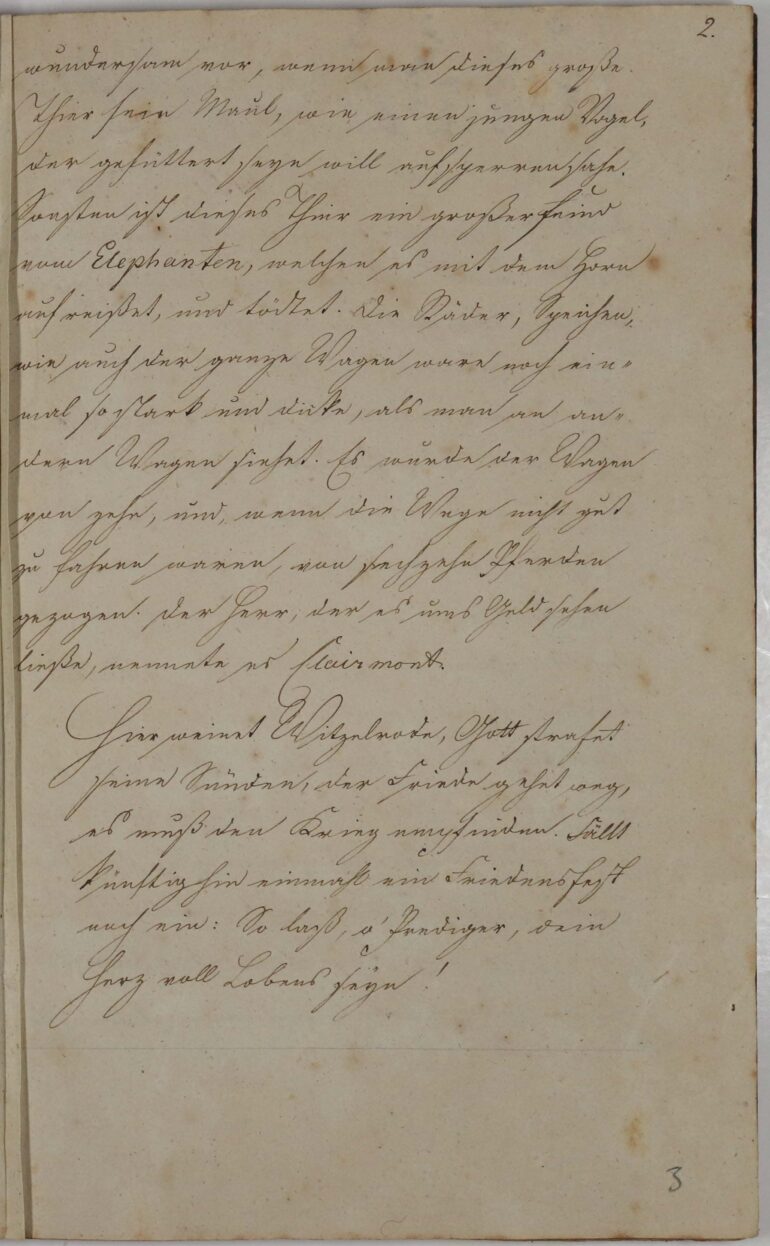 2.
wundersam vor, wenn man dieses große
Thier sein Maul, wie einen jungen Vogel,
der gefüttert seyn will aufsperren sahe.
Sonsten ist dieses Thier ein großer feind
vom Elephanten, welchen es mit dem Horn
aufreißet, und tödtet. Die Räder, Speichen,
wie auch der ganze Wagen ware noch ein-
mal so stark und dicke, als man an an-
dern Wagen siehet. Es wurde der Wagen
von zehn, und, wenn die Wege nicht gut
zu fahren waren, von sechzehn Pferden
gezogen. Der Herr, der es ums Geld sehen
ließe, nennete es Clairmont.
Hier weinet Witzelrode, Gott strafet
seine Sünden, der Friede gehet weg,
es muß den Krieg empfinden. Fällt
künftighin einmahl ein Friedensfest
noch ein: So laß, o' Prediger, dein
Herz voll Lobens seyn!
3